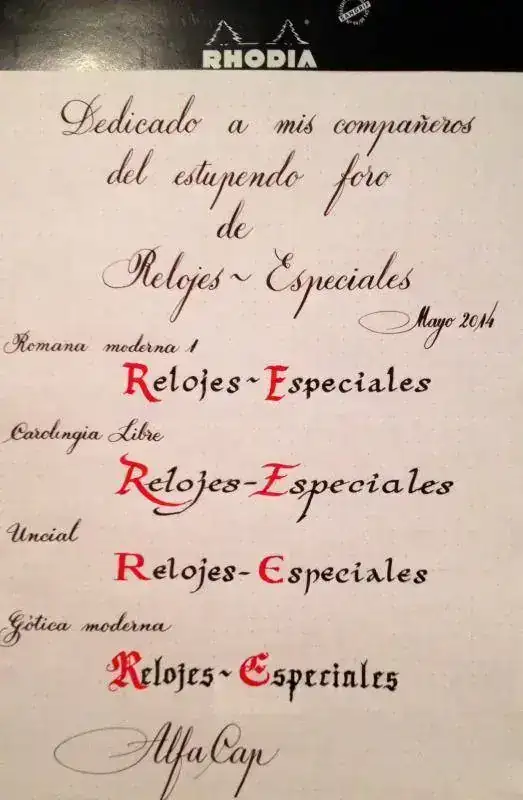 RHODIA
Dedicado a mis compañeros
del estupendo foro
de
Relojes~Especiales
Mayo 2014
Romana moderna 1
Relojes~Especiales
Carolingia Libre
Relojes-Especiales
Uncial
Relojes-Especiales
Gótica moderna
Relojes~Especiales
Alfa Cap